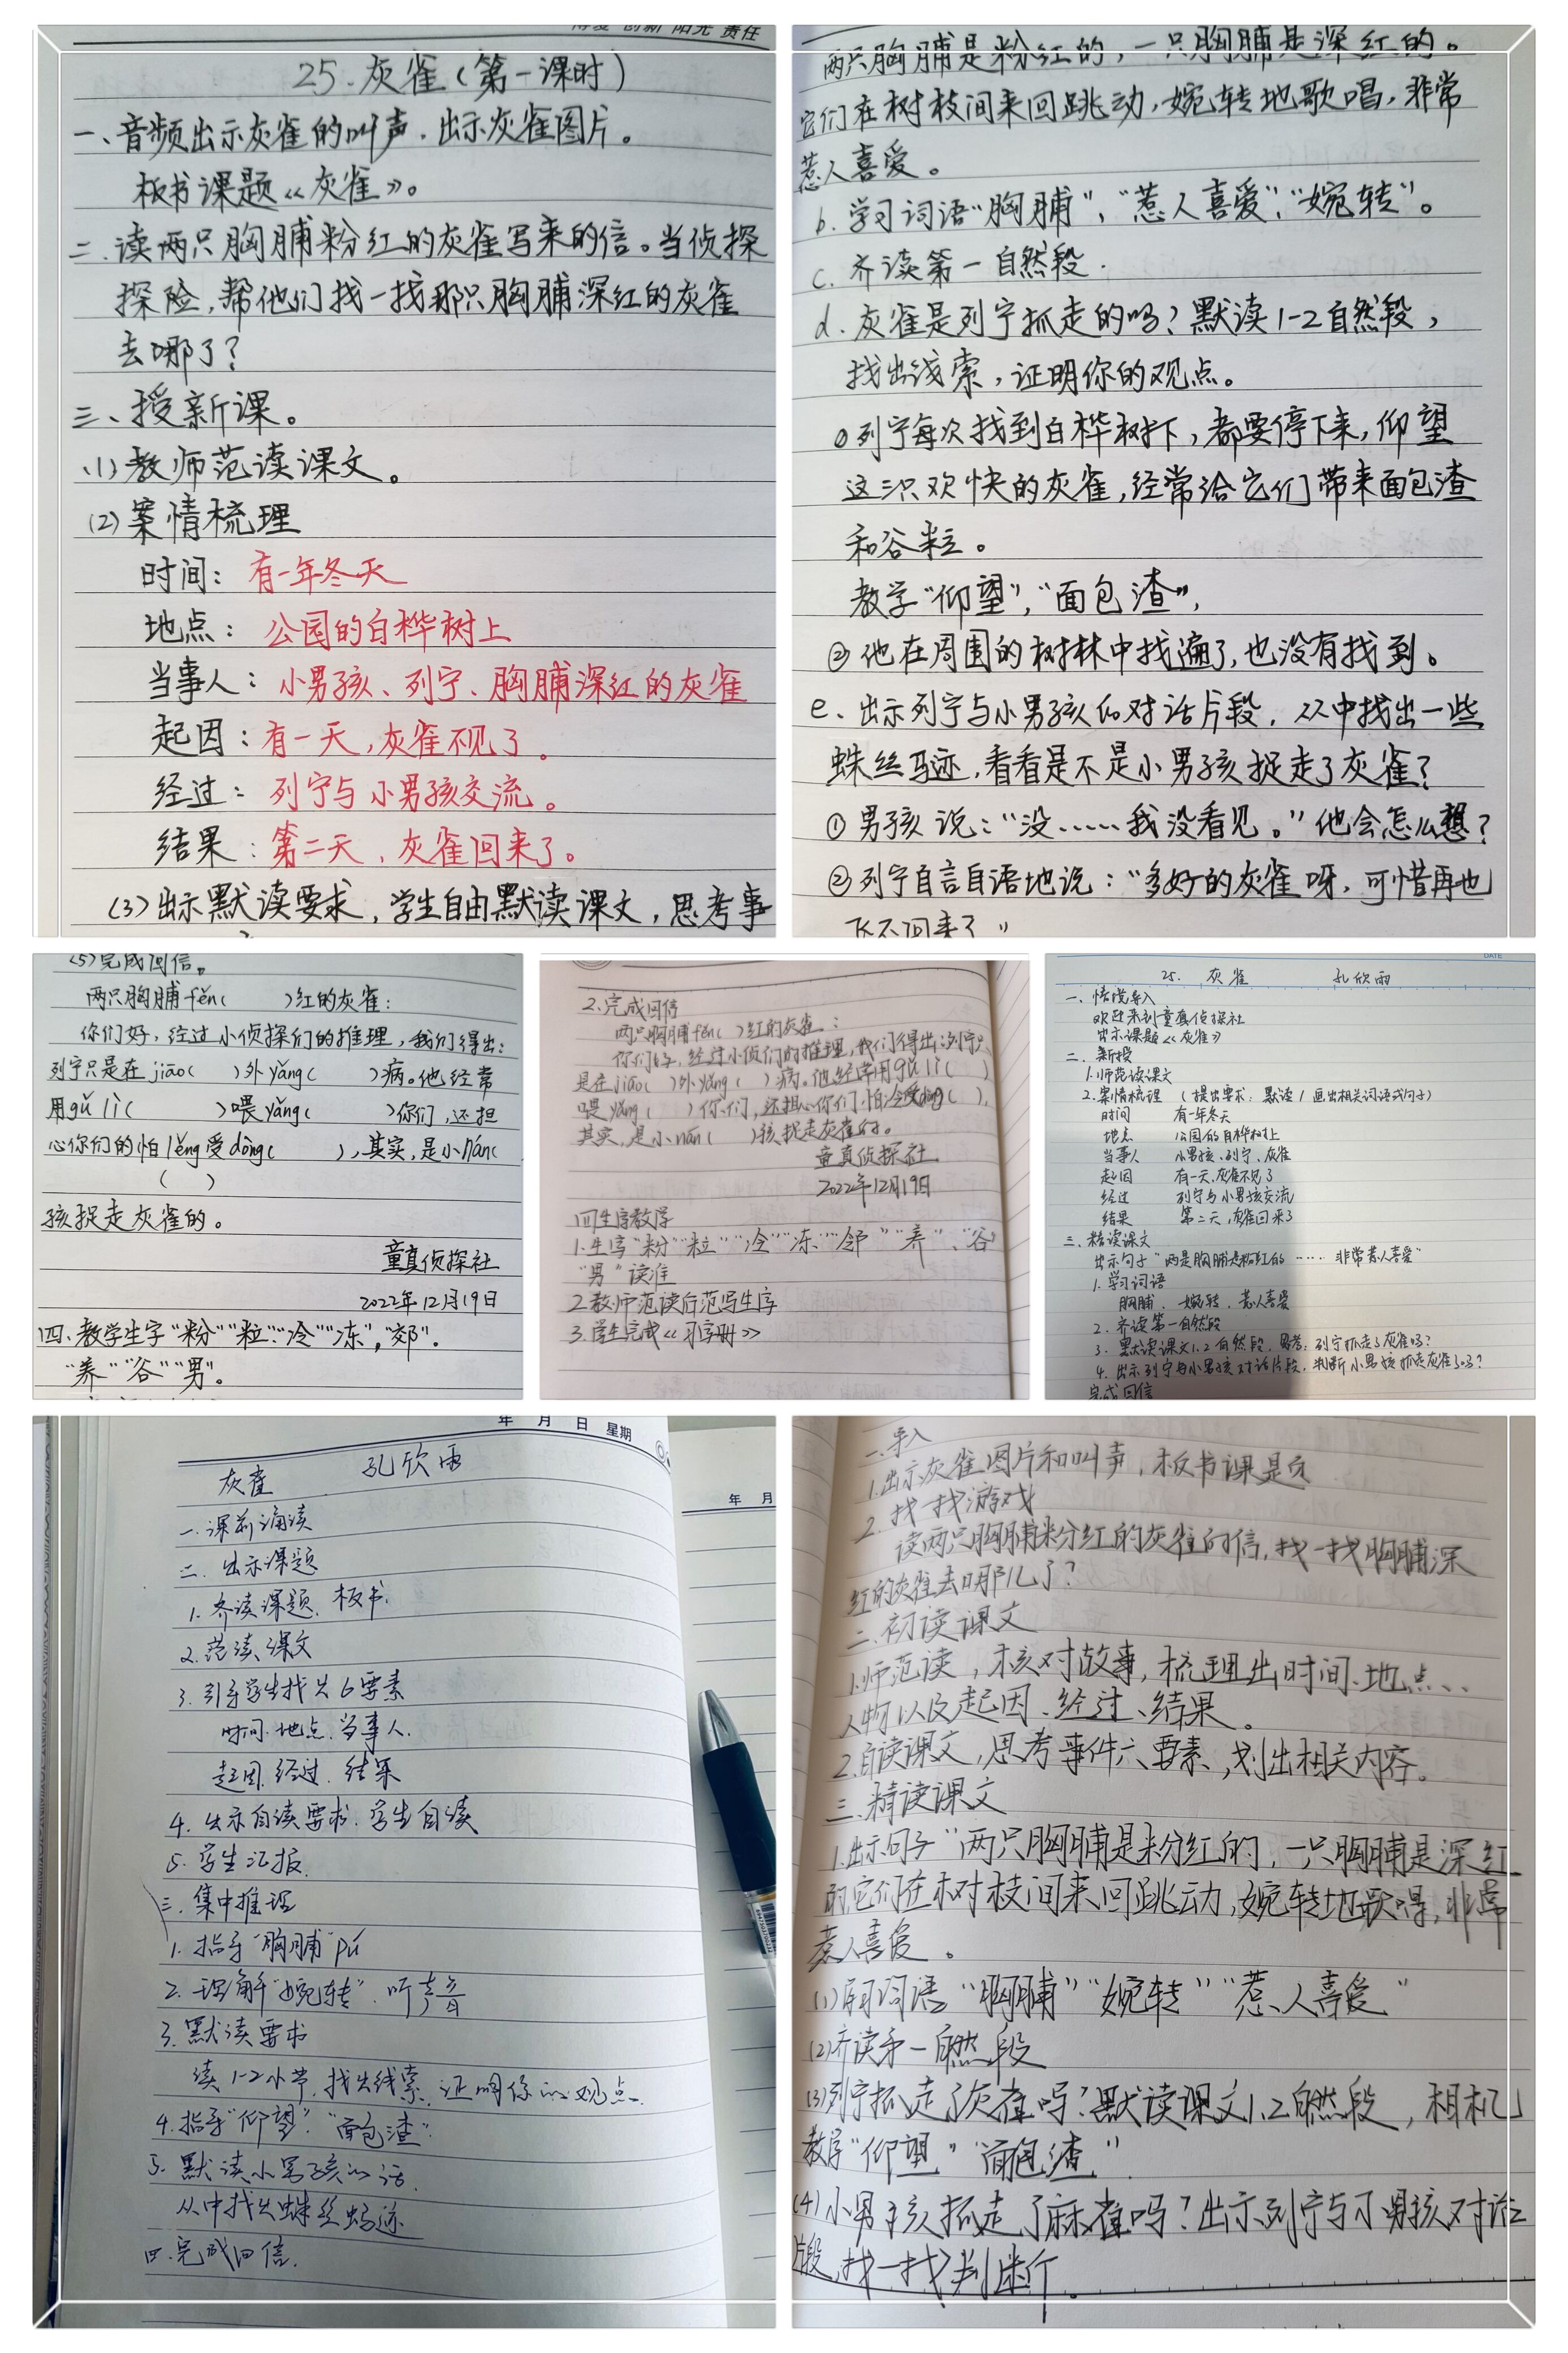 博爱 创新 阳光 责任
25.灰雀(第一课时)
一、音频出示灰雀的叫声.出示灰雀图片。
板书课题《灰雀》。
二.读两只胸脯粉红的灰雀写来的信。当侦探
探险,帮他们找一找那只胸脯深红的灰雀
去哪了?
三、授新课。
(1)教师范读课文。
(2)案情梳理
时间:有一年冬天
地点:公园的白桦树上
当事人:小男孩、列宁、胸脯深红的灰雀
起因:有一天,灰雀不见了。
经过:列宁与小男孩交流。
结果:第二天,灰雀回来了。
(3)出示默读要求,学生自由默读课文,思考事
两只胸脯是粉红的,一只胸脯是深红的。
它们在树枝间来回跳动,婉转地歌唱,非常
惹人喜爱。
b.学习词语“胸脯”,“惹人喜爱”,“婉转”。
c.齐读第一自然段.
d.灰雀是列宁抓走的吗?默读1-2自然段,
找出线索,证明你的观点。
①列宁每次找到白桦树下,都要停下来,仰望
这三只欢快的灰雀,经常给它们带来面包渣
和谷粒。
教学“仰望”,“面包渣”,
②他在周围的树林中找遍了,也没有找到。
e、出示列宁与小男孩的对话片段,从中找出一些
蛛丝马迹,看看是不是小男孩捉走了灰雀?
①男孩说:“没……我没看见。”他会怎么想?
②列宁自言自语地说:“多好的灰雀呀,可惜再也
飞不回来了”
(5)完成回信。
两只胸脯fěn( )红的灰雀:
你们好,经过小侦探们的推理,我们得出:
列宁只是在jiāo( )外yǎng( )病。他经常
用gǔ lì( )喂yǎng( )你们,还担
心你们的怕lěng受dòng( ),其实,是小nán(
( )
孩捉走灰雀的。
童真侦探社
2022年12月19日
四、教学生字“粉”“粒”“冷”“冻”,“郊”.
“养”“谷”“男”。
2.完成回信
两只胸脯fěn( )红的灰雀:
你们好,经过小侦们的推理,我们得出:列宁只
是在jiāo( )外yǎng( )病。他经常用gǔ lì( )
喂yǎng( )你们,还担心你们怕冷受dòng( ),
其实,是小nán( )孩捉走灰雀的。
童真侦探社
2022年12月19日
四生字教学
1.生字“粉”“粒”“冷”“冻”“郊”“养”、“谷”
“男”读准
2.教师范读后范写生字
3.学生完成《习字册》
DATE
25. 灰雀 孔欣雨
一、情境导入
欢迎来到童真侦探社
出示课题《灰雀》
二、新授
1.师范读课文
2.案情梳理 (提出要求:默读/画出相关词语或句子)
时间 有一年冬天
地点 公园的白桦树上
当事人 小男孩、列宁、灰雀
起因 有一天,灰雀不见了
经过 列宁与小男孩交流
结果 第二天,灰雀回来了
三、精读课文
出示句子“两是胸脯是粉红的……非常惹人喜爱”
1.学习词语
胸脯、婉转、惹人喜爱
2.齐读第一自然段
3.默读课文1.2自然段,思考:列宁抓走了灰雀吗?
4.出示列宁与小男孩对话片段,判断小男孩抓走灰雀了吗?
完成回信
年 月 日 星期
年 月
灰雀 孔欣雨
一.课前诵读
二.出示课题
1.齐读课题.板书.
2.范读课文
3.引导学生找出6要素
时间.地点.当事人.
起因.经过.结果
4.出示自读要求.学生自读
5.学生汇报.
三.集中推理
1.指导“胸脯”pú
2.理解“婉转”.听声音
3.默读要求
读1-2小节.找出线索.证明你的观点.
4.指导“仰望”.“面包渣”.
5.默读小男孩的话.
从中找出蛛丝蚂迹
四.完成回信.
一.导入
1.出示灰雀图片和叫声,板书课题
2.找一找游戏
读两只胸脯粉红的灰雀的信,找一找胸脯深
红的灰雀去哪儿了?
二.初读课文
1.师范读,核对故事,梳理出时间、地点、、
人物以及起因、经过、结果。
2.自读课文,思考事件六要素,划出相关内容。
三.精读课文
1.出示句子“两只胸脯是粉红的,一只胸脯是深红
的它们在树枝间来回跳动,婉转地歌唱,非常
惹人喜爱。
词语“胸脯”“婉转”“惹人喜爱”
(2)齐读第一自然段
(3)列宁抓走了灰雀吗?默读课文1.2自然段,相机
教学“仰望”“面包渣”
(4)小男孩抓走了麻雀吗?出示列宁与小男孩对话
片段,找一找,判断.